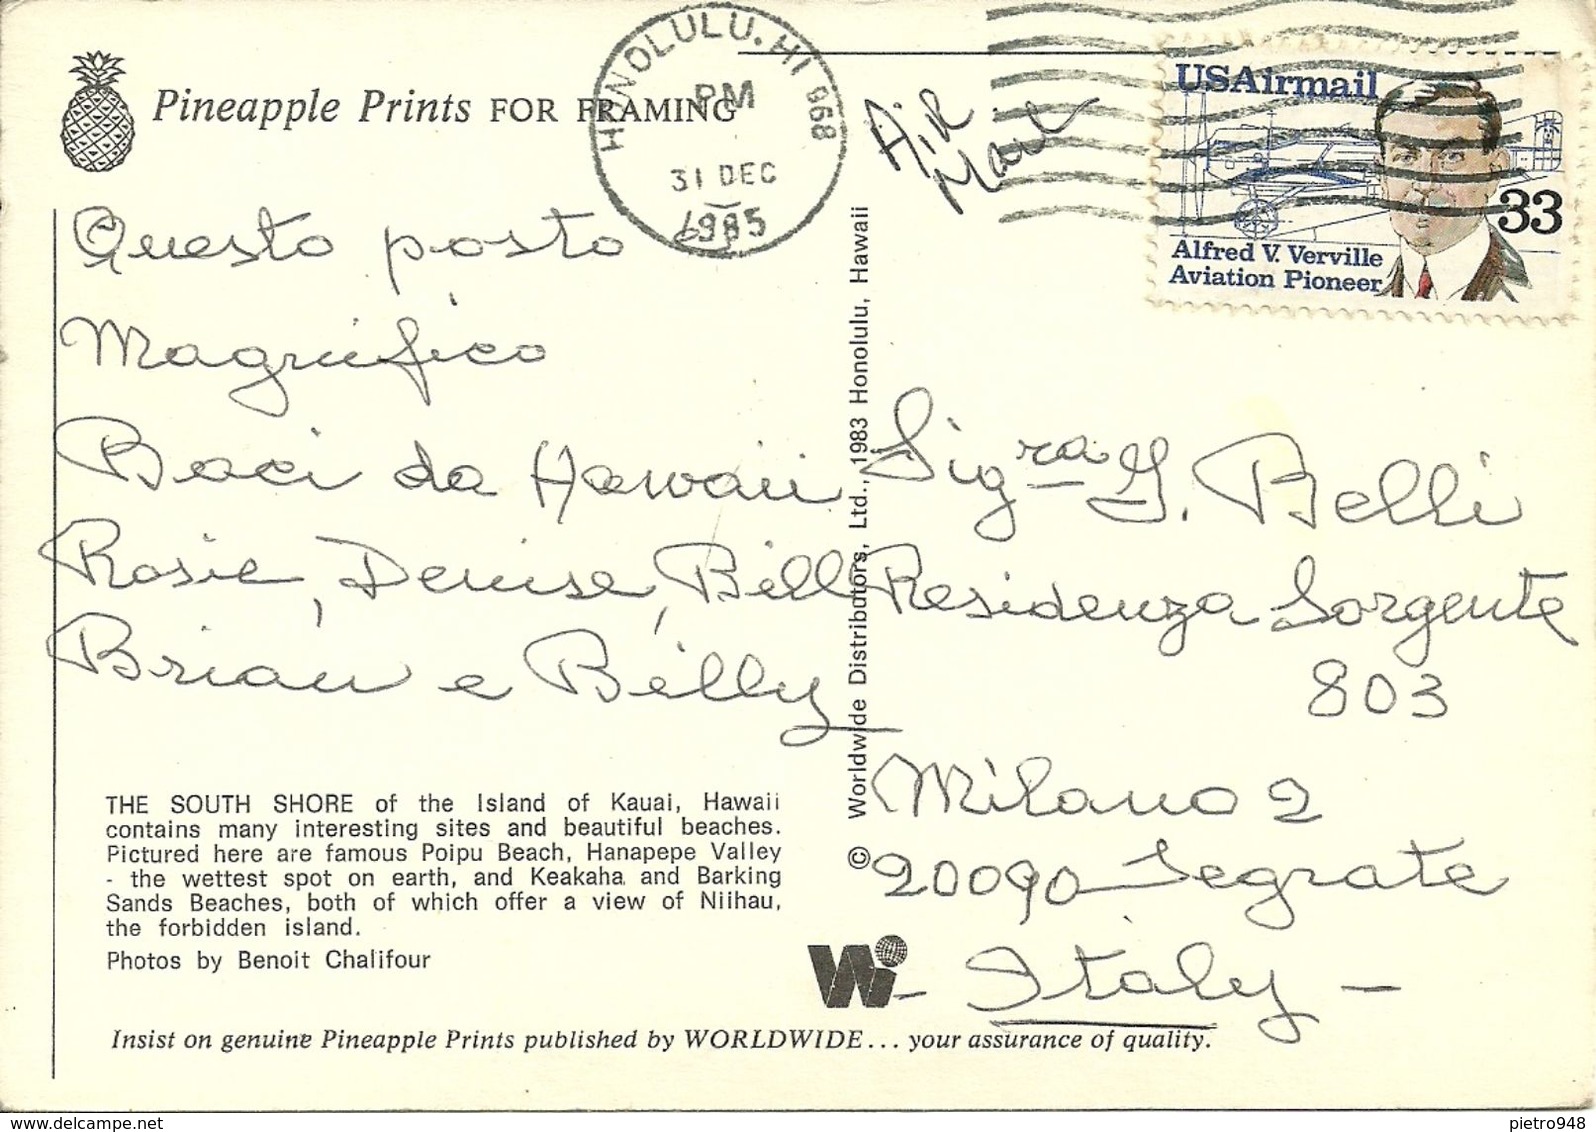 Pineapple Prints FOR FRAMING
HONOLULU, HI 968
PM
31 DEC
1985
Air
Mail
USAirmail
33
Alfred V. Verville
Aviation Pioneer
Questo posto
Magnifico
Baci da Hawaii
Rosie, Denise, Bill
Brian e Billy
THE SOUTH SHORE of the Island of Kauai, Hawaii
contains many interesting sites and beautiful beaches.
Pictured here are famous Poipu Beach, Hanapepe Valley
- the wettest spot on earth, and Keakaha and Barking
Sands Beaches, both of which offer a view of Niihau,
the forbidden island.
Photos by Benoit Chalifour
© Worldwide Distributors, Ltd., 1983 Honolulu, Hawaii
Sigra G. Belli
Residenza Sorgente
803
Milano 2
20090 Segrate
- Italy -
Wi
Insist on genuine Pineapple Prints published by WORLDWIDE... your assurance of quality.
pietro948